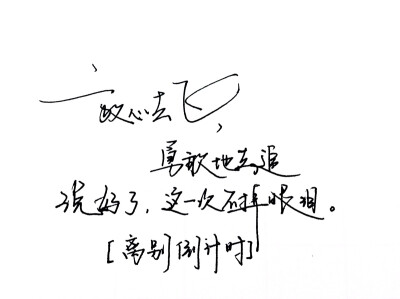 放心去飞,
勇敢地去追
说好了,这一次不掉眼泪。
[离别倒计时]